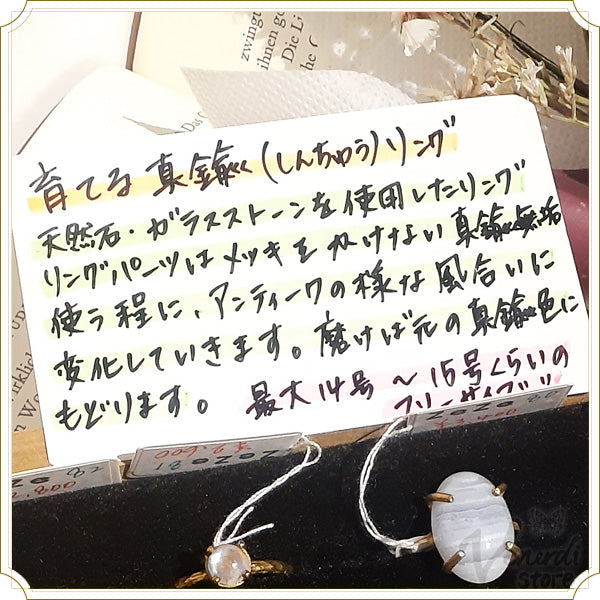 zwingt
ihnen go
Die Li
育てる真鍮(しんちゅう)リング
天然石・ガラスストーンを使用したリング
リングパーツはメッキをかけない真鍮無垢
使う程に、アンティークの様な風合いに
変化していきます。磨けば元の真鍮色に
もどります。最大14号〜15号くらいの
フリーサイズ
¥2,600
store